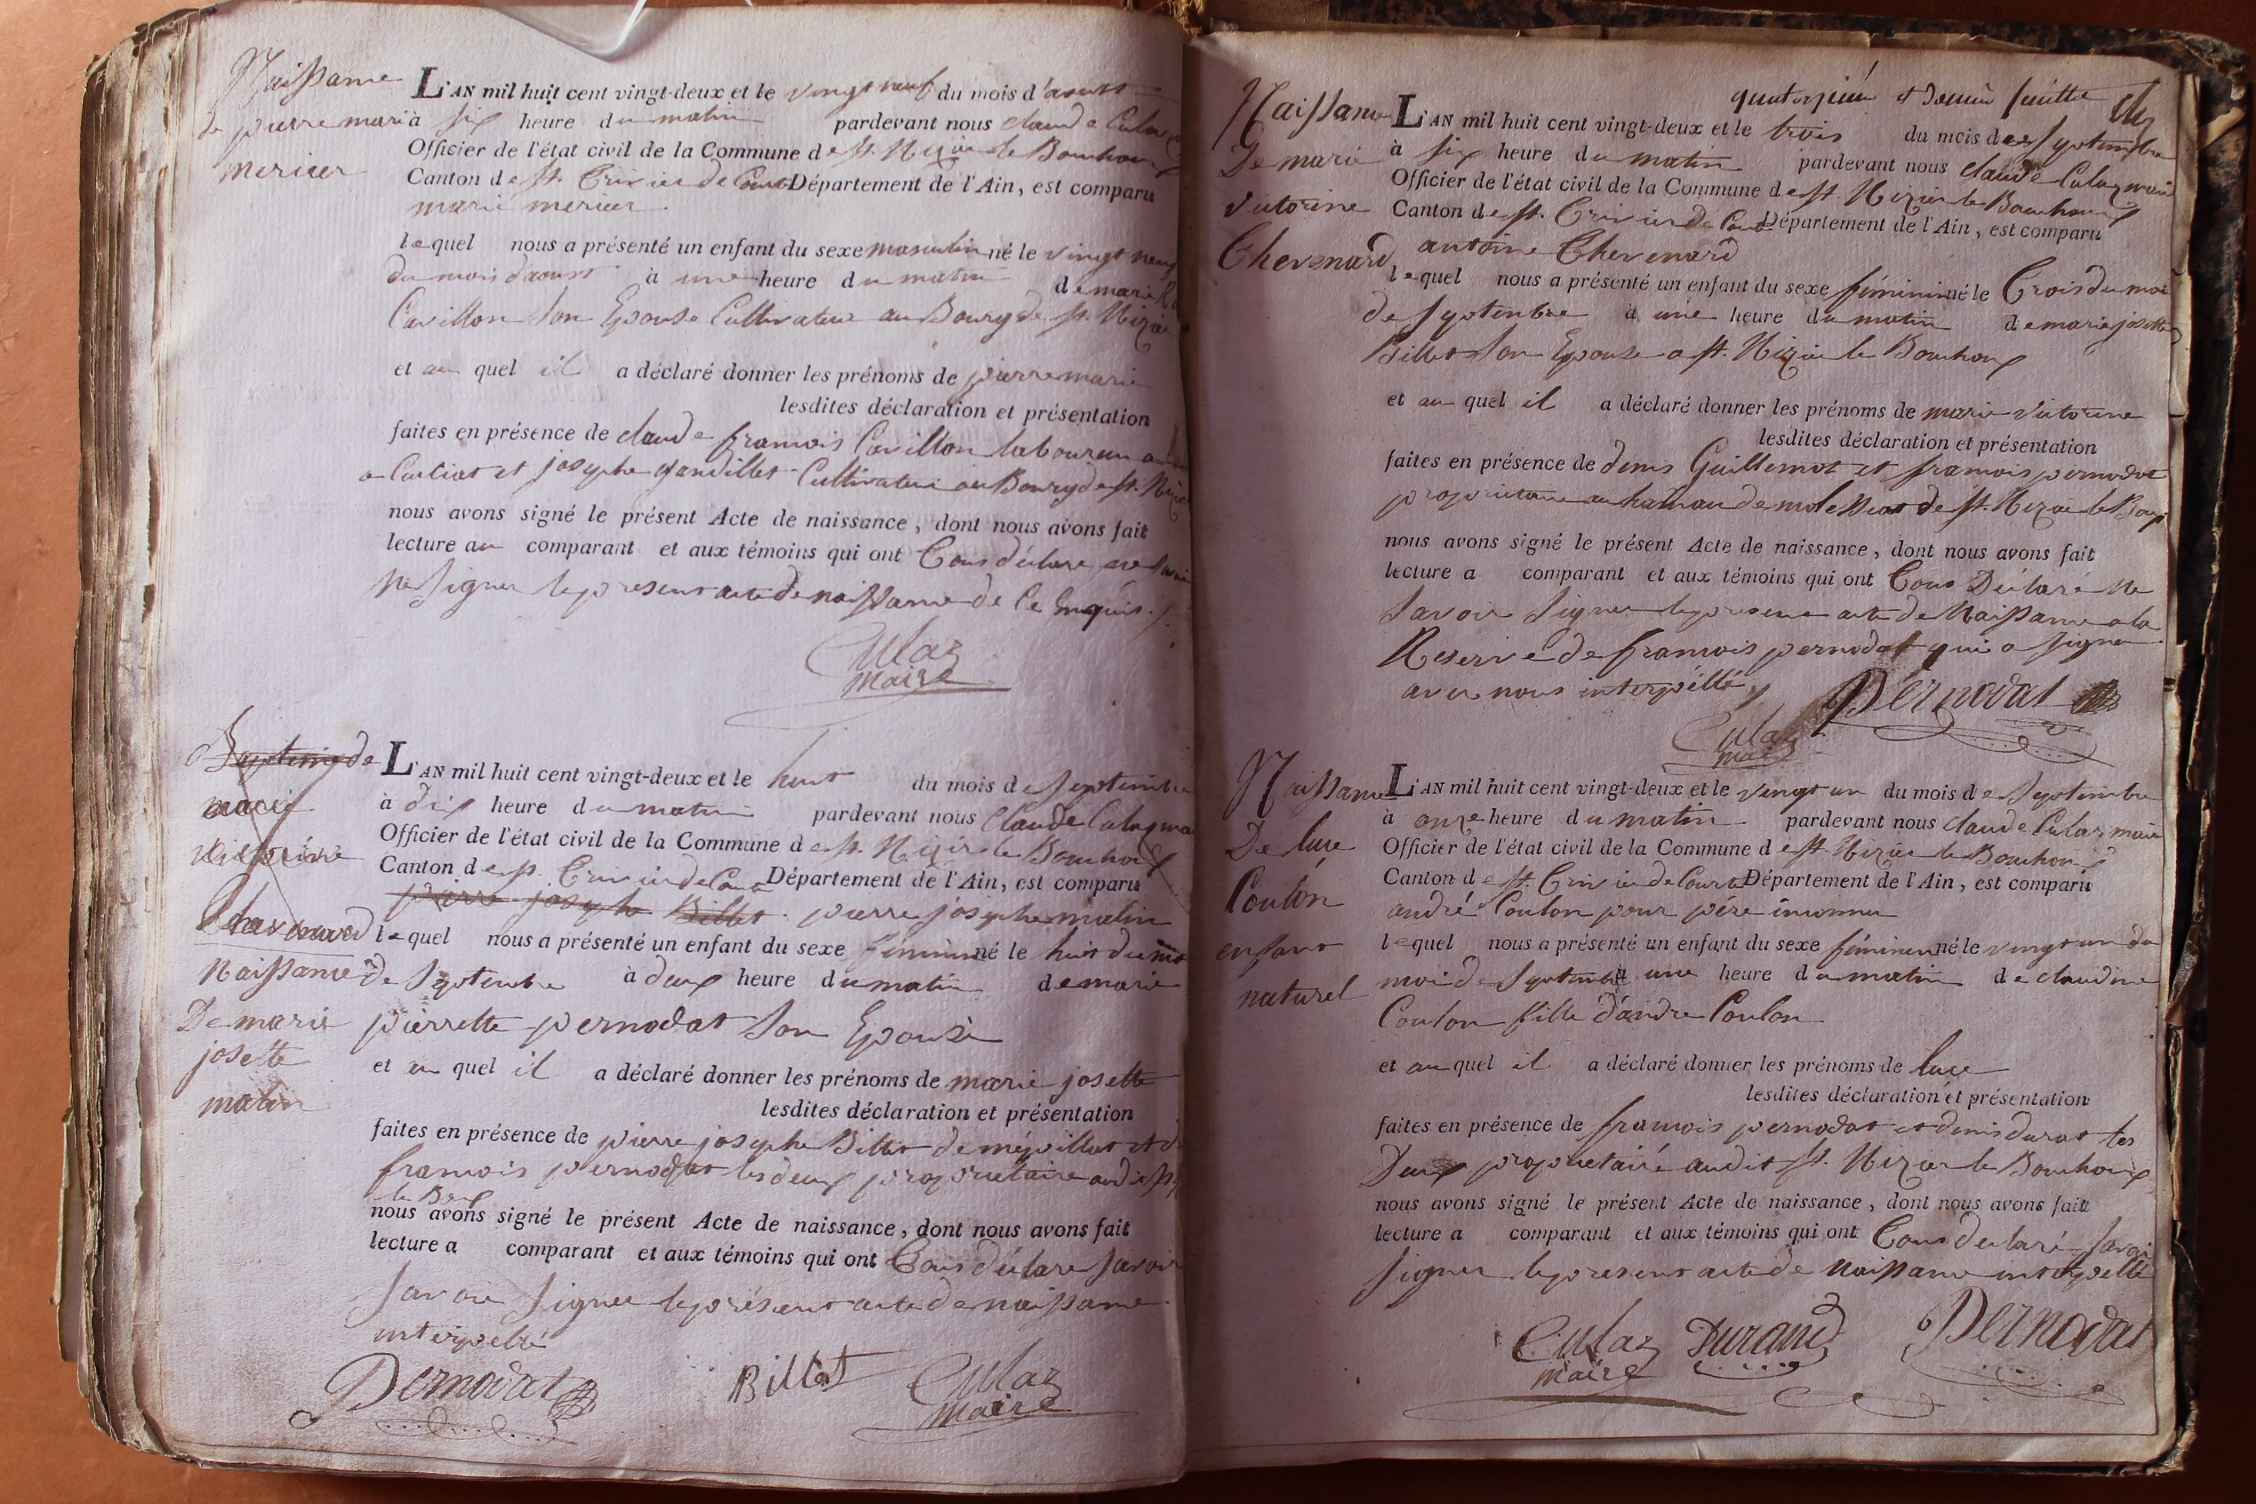 Naissance
de pierre marie
mericer
L'AN mil huit cent vingt-deux et le vingt neuf du mois d'aoust
à six heure du matin pardevant nous claude Culaz
Officier de l'état civil de la Commune de st. Nizier le Bouchoux
Canton de st. Trivier de Court Département de l'Ain, est comparu
marie mericer
lequel nous a présenté un enfant du sexe masculin né le vingt neuf
du mois daoust à une heure du matin de marie
Cavillon son Epouse Cultivateur au Bourg de st. Nizier
et au quel il a déclaré donner les prénoms de pierre marie
lesdites déclaration et présentation
faites en présence de claude francois Cavillon laboureur
a Curciat et josephe gandillet Cultivateur au Bourg de st. Nizier
nous avons signé le présent Acte de naissance, dont nous avons fait
lecture au comparant et aux témoins qui ont tous déclare ne savoir
ne signer le present acte de naissance de ce enquis ./.
Culaz
maire
Baptemy de
marie
victorine
Chavenard
Naissance
De marie
josette
matin
L'AN mil huit cent vingt-deux et le huit du mois de septembre
à dix heure du matin pardevant nous Claude Culaz maire
Officier de l'état civil de la Commune de st. Nizier le Bouchoux
Canton de st. Trivier de Court Département de l'Ain, est comparu
pierre josephe Billet pierre josephe matin
lequel nous a présenté un enfant du sexe féminin né le huit du moi
de septembre à deux heure du matin de marie
pierrette pernodat son Epouse
et au quel il a déclaré donner les prénoms de marie josette
lesdites déclaration et présentation
faites en présence de pierre josephe Billet de mépillat et de
francois pernodat les deux propriétaire audit st.
le Boux
nous avons signé le présent Acte de naissance, dont nous avons fait
lecture a comparant et aux témoins qui ont tous déclare savoir
savoir signer le présent acte de naissance
interpellé
Pernodat Billet Culaz
maire
quatorzieme et dernier feuillet
Naissance
De marie
victorine
Chevenard
L'AN mil huit cent vingt-deux et le trois du mois de septembre
à six heure du matin pardevant nous claude Culaz maire
Officier de l'état civil de la Commune de st. Nizier le Bouchoux
Canton de st. Trivier de Court Département de l'Ain, est comparu
antoine Chevenard
lequel nous a présenté un enfant du sexe féminin né le Trois du moi
de septembre à une heure du matin de marie josette
Billet son Epouse a st. Nizier le Bouchoux
et au quel il a déclaré donner les prénoms de marie victorine
lesdites déclaration et présentation
faites en présence de denis Guillemot et francois pernodat
propriétaire au hamau de de st. Nizier le Boux
nous avons signé le présent Acte de naissance, dont nous avons fait
lecture a comparant et aux témoins qui ont tous Déclaré ne
savoir signer le present acte de Naissance a la
Reserve de francois pernodat qui a signer
avec nous interpéllé
Pernodat
Culaz
maire
Naissance
De luce
Coulon
enfant
naturel
L'AN mil huit cent vingt-deux et le vingt un du mois de septembre
à onze heure du matin pardevant nous claude Culaz maire
Officier de l'état civil de la Commune de st. Nizier le Bouchoux
Canton de st. Trivier de Court Département de l'Ain, est comparu
andré Coulon pour pére inconnu
lequel nous a présenté un enfant du sexe féminin né le vingt un du
moi de septembre à une heure du matin de claudine
Coulon fille d'andre Coulon
et au quel il a déclaré donner les prénoms de luce
lesdites déclaration et présentation
faites en présence de francois pernodat et denis durat les
Deux propriétairé audit st. Nizier le Bouchoux
nous avons signé le présent Acte de naissance, dont nous avons fait
lecture a comparant et aux témoins qui ont tous déclaré savoir
signer le present acte de naissance interpellé
Culaz Durand Pernodat
maire